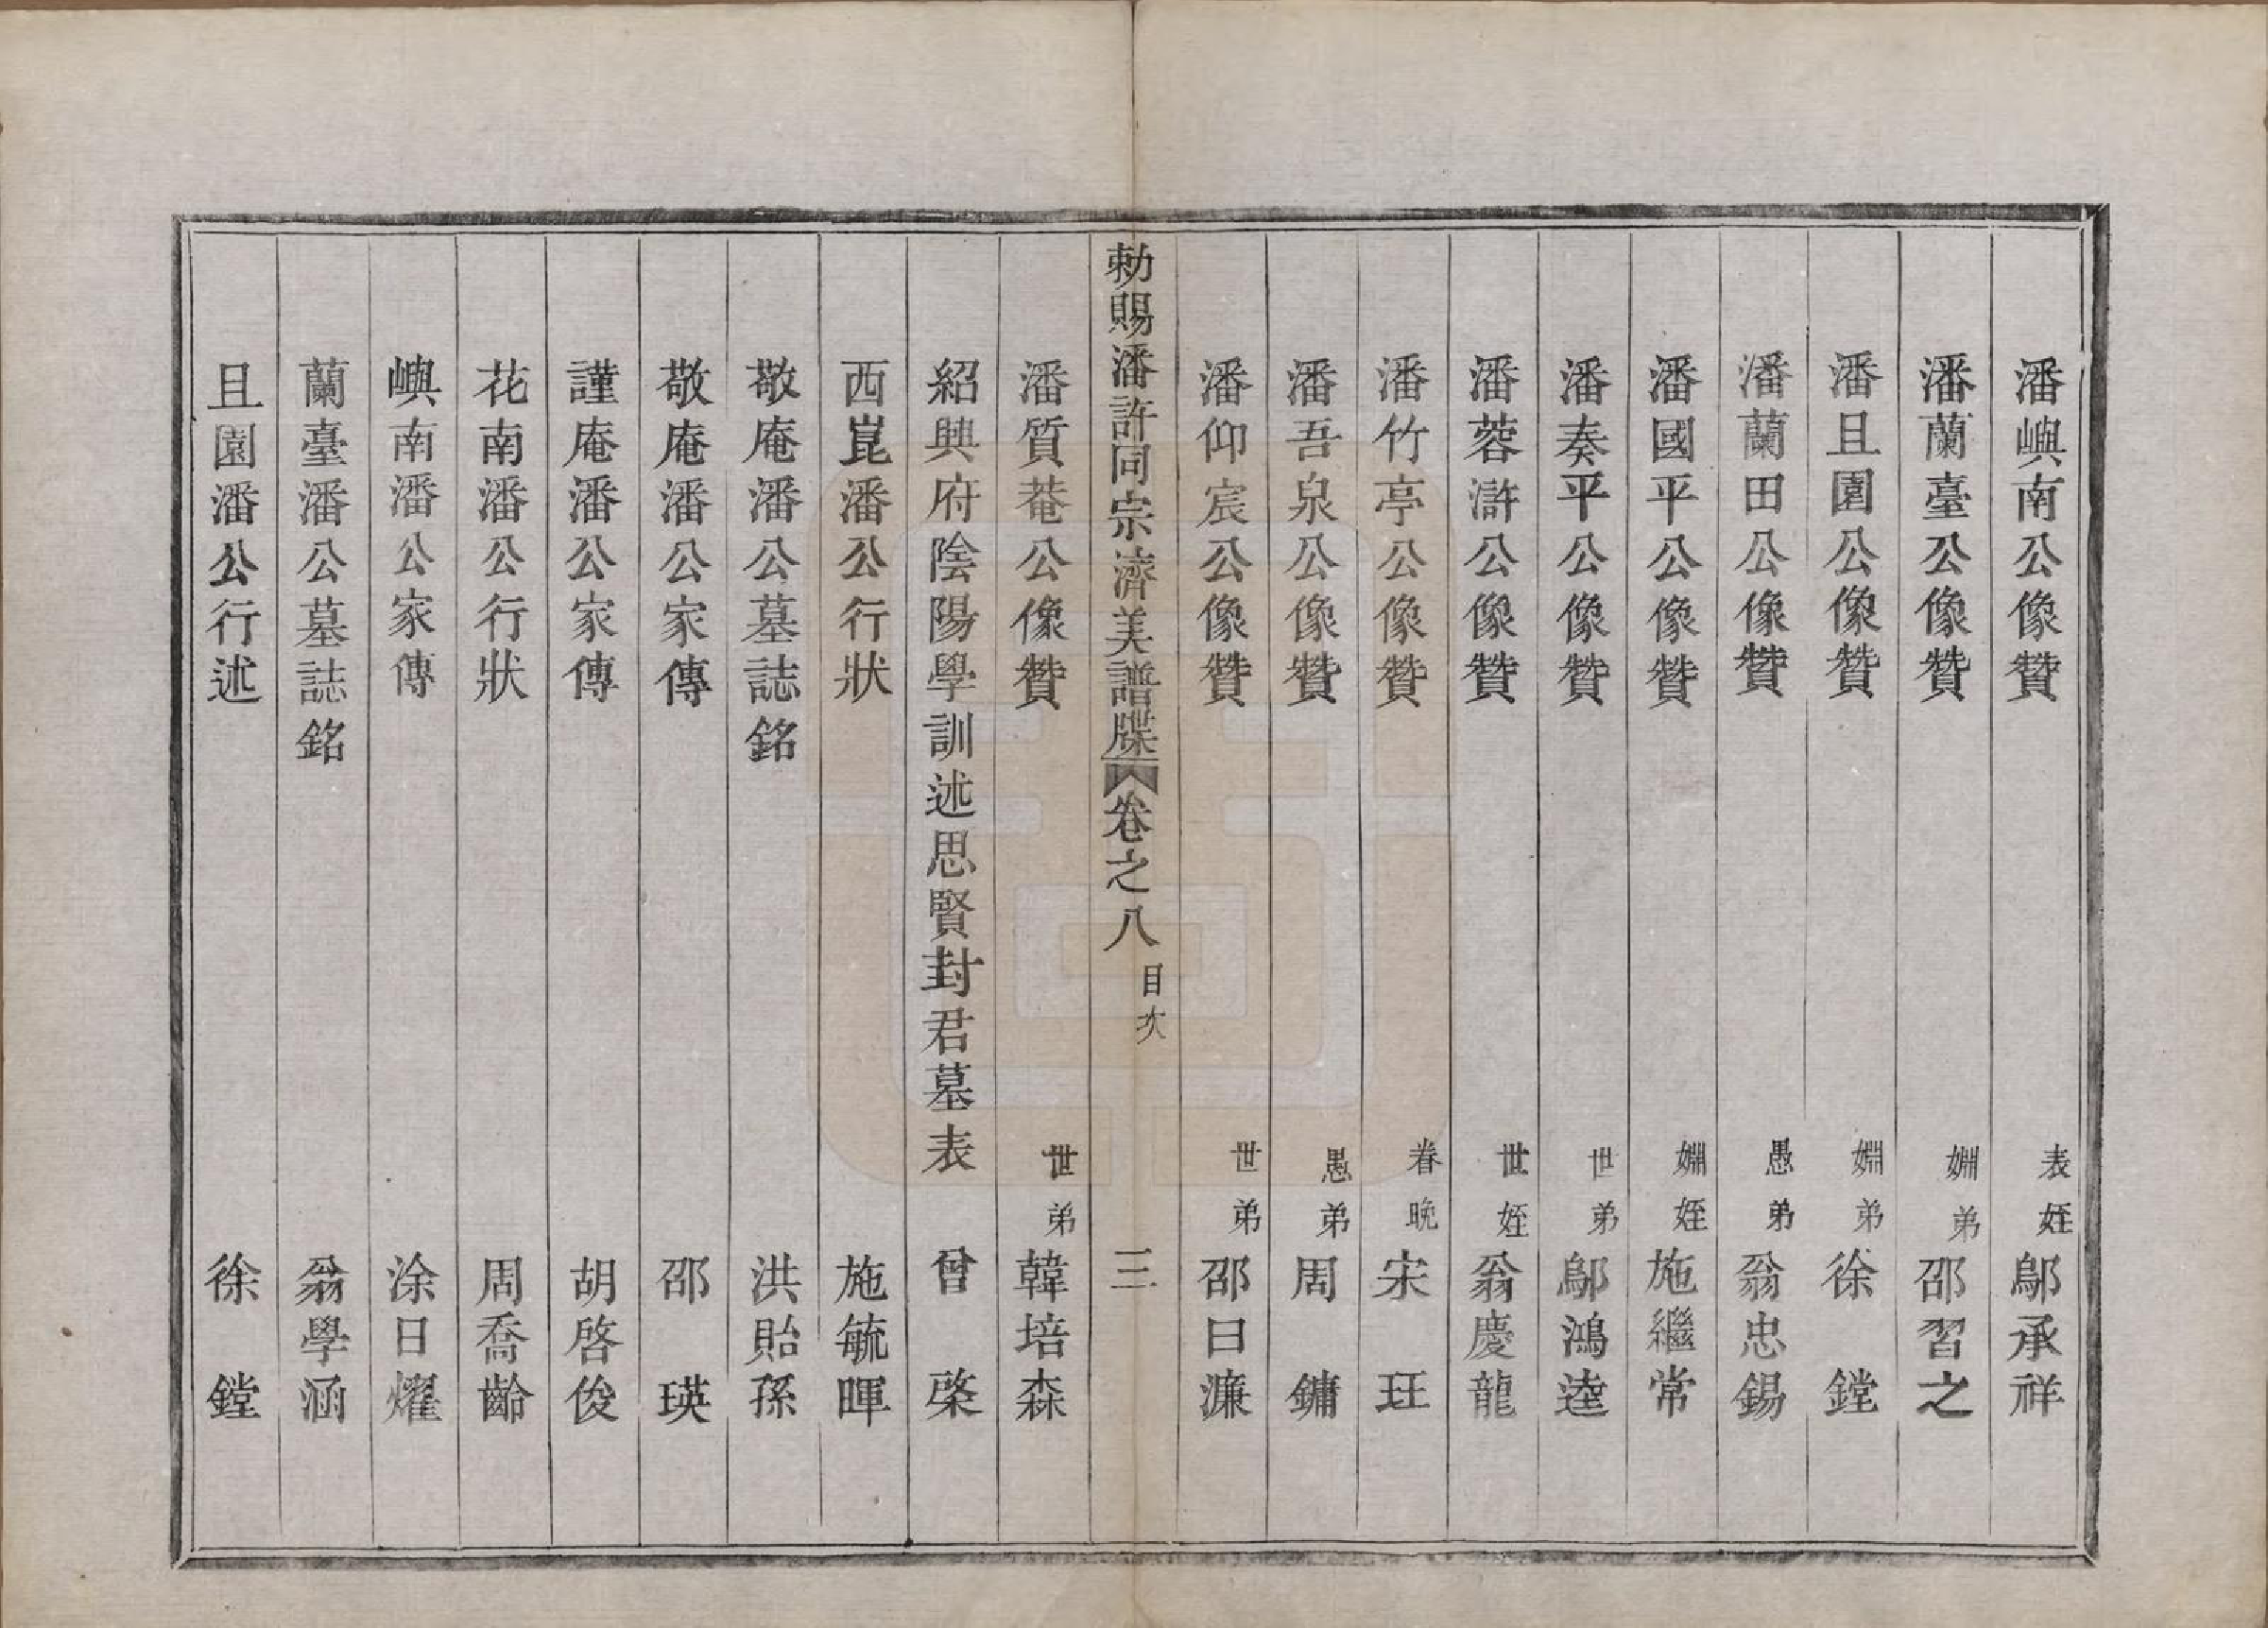 潘嶼南公像贊 表姪鄔承祥
潘蘭臺公像贊 姻弟邵習之
潘且園公像贊 姻弟徐鏜
潘蘭田公像贊 愚弟翁忠錫
潘國平公像贊 姻姪施繼常
潘奏平公像贊 世弟鄔鴻逵
潘蓉滸公像贊 世姪翁慶龍
潘竹亭公像贊 眷晚宋玨
潘吾泉公像贊 愚弟周鏞
潘仰宸公像贊 世弟邵日濂
勅賜潘許同宗濟美譜牒 卷之八 目次 三
潘質菴公像贊 世弟韓培森
紹興府陰陽學訓述思賢封君墓表 曾棨
西崑潘公行狀 施毓暉
敬庵潘公墓誌銘 洪貽孫
敬庵潘公家傳 邵瑛
謹庵潘公家傳 胡啓俊
花南潘公行狀 周喬齡
嶼南潘公家傳 涂日燿
蘭臺潘公墓誌銘 翁學涵
且園潘公行述 徐鏜